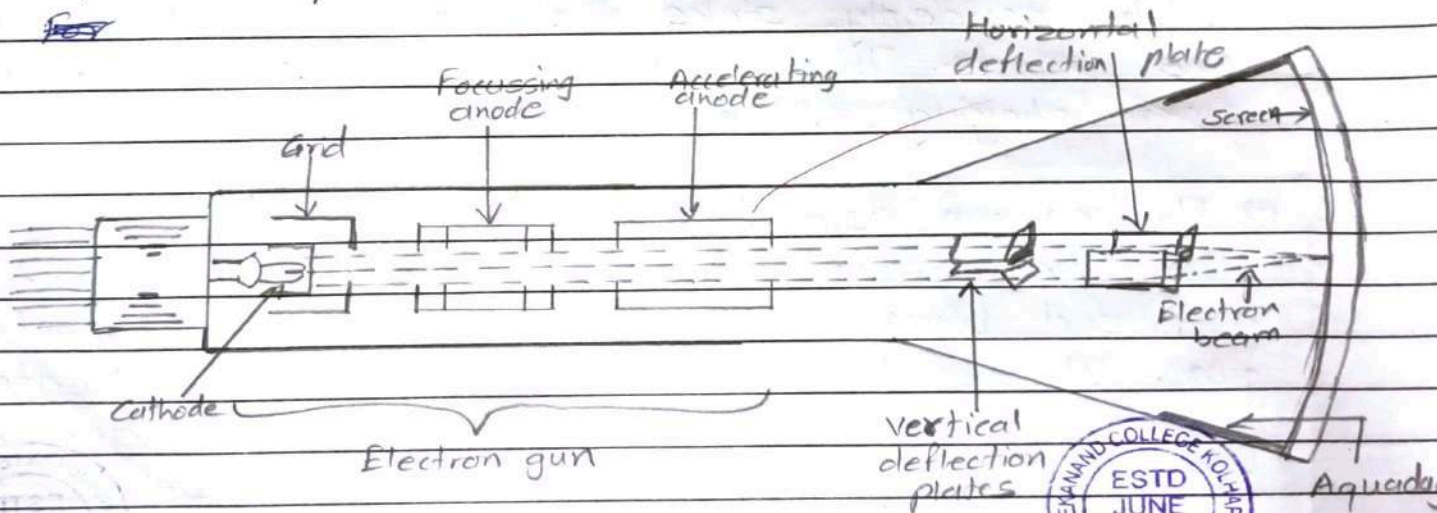 Horizontal
deflection plate
Focussing
anode
Accelerating
anode
Screen
Grid
Electron
beam
Cathode
Electron gun
vertical
deflection
plates
COLLEGE
ESTD
JUNE